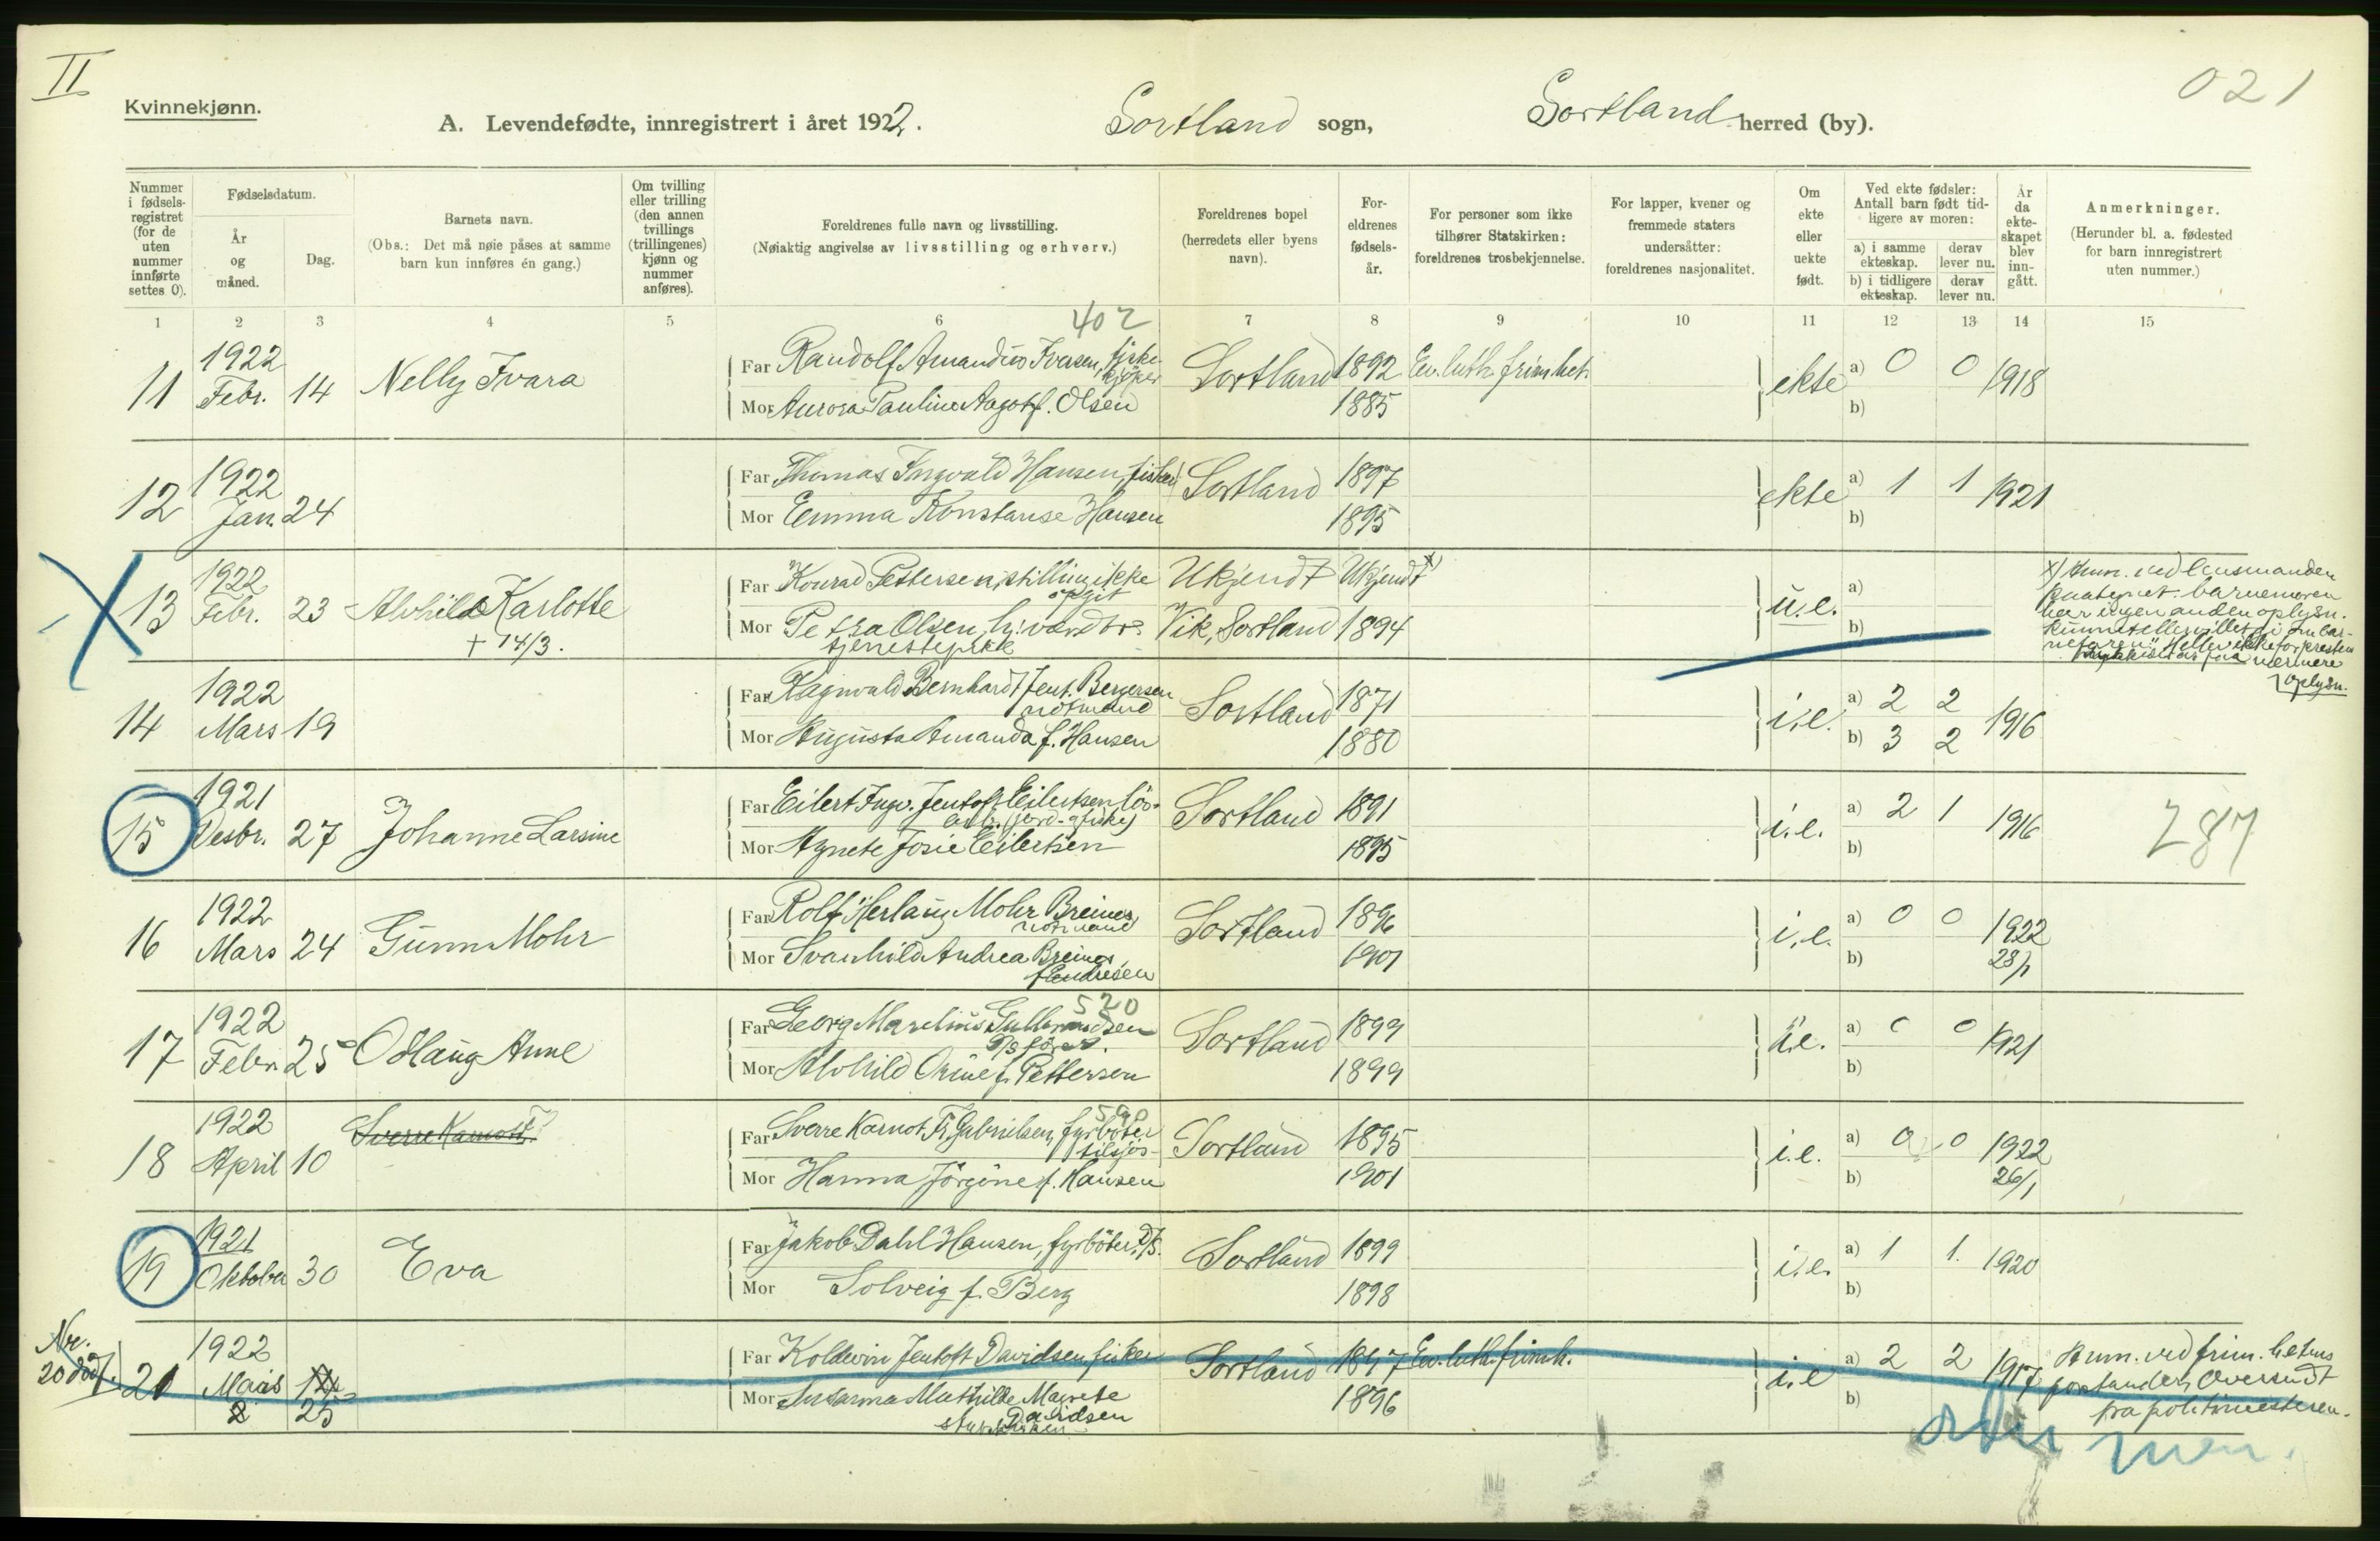 II
Kvinnekjønn.
021
A. Levendefødte, innregistrert i året 1922.
Sortland sogn,
Sortland herred (by).
Nummer i fødsels-registret (for de uten nummer innførte settes 0).
Fødselsdatum.
År og måned.
Dag.
Barnets navn.
(Obs.: Det må nøie påses at samme barn kun innføres én gang.)
Om tvilling eller trilling (den annen tvillings (trillingenes) kjønn og nummer anføres).
Foreldrenes fulle navn og livsstilling.
(Nøiaktig angivelse av livsstilling og erhverv.)
Foreldrenes bopel (herredets eller byens navn).
For-eldrenes fødsels-år.
For personer som ikke tilhører Statskirken: foreldrenes trosbekjennelse.
For lapper, kvener og fremmede staters undersåtter: foreldrenes nasjonalitet.
Om ekte eller uekte født.
Ved ekte fødsler: Antall barn født tid-ligere av moren:
a) i samme ekteskap.
derav lever nu.
b) i tidligere ekteskap.
derav lever nu.
År da ekte-skapet blev inn-gått.
Anmerkninger.
(Herunder bl. a. fødested for barn innregistrert uten nummer.)
1 2 3 4 5 6 7 8 9 10 11 12 13 14 15
402
11 1922 Febr. 14 Nelly Ivara
Far Randolf Amandus Iversen, fiske-kjøper Sortland 1892 Ev. luth. frimen.
Mor Aurora Pauline Aagot f. Olsen 1885
ekte a) 0 0 1918
b)
12 1922 Jan. 24
Far Thomas Ingvald Hansen, fisker Sortland 1897
Mor Emma Konstanse Hansen 1895
ekte a) 1 1 1921
b)
13 1922 Febr. 23 Alvhild Karlotte
+ 14/3.
Far Konrad Pettersen, stilling ikke opgit Ukjendt Ukjendt x)
Mor Petra Olsen, tjenestepike Vik, Sortland 1894
u.e. a)
b)
x) Anm. ved lensmanden
har ingen anden oplysn.
nærmere
oplysn.
14 1922 Mars 19
Far Ragnvald Bernhard Jent. Bergersen notmand Sortland 1871
Mor Augusta Amanda f. Hansen 1880
i.e. a) 2 2 1916
b) 3 2
15 1921 Desbr. 27 Johanne Larsine
Far Eilert Ingv. Jentoft Eilertsen løs-arb. (jord- og fiske) Sortland 1891
Mor Agnete Josie Eilertsen 1895
i.e. a) 2 1 1916
b)
287
16 1922 Mars 24 Gunn Mohr
Far Rolf Herlaug Mohr Breines notmand Sortland 1896
Mor Svanhild Andrea Breines f. Endresen 1901
i.e. a) 0 0 1922 28/1
b)
520
17 1922 Febr. 25 Odlaug Anne
Far Georg Marelius Gulbrandsen Sortland 1899
Mor Alvhild Orine f. Pettersen 1899
i.e. a) 0 0 1921
b)
18 1922 April 10 Sverre Karnot F.
590
Far Sverre Karnot Fr. Gabrielsen, fyrbøter tilsjøs Sortland 1895
Mor Hanna Jørgine f. Hansen 1901
i.e. a) 0 0 1922 26/1
b)
19 1921 Oktober 30 Eva
Far Jakob Dahl Hansen, fyrbøter D/S. Sortland 1899
Mor Solveig f. Berg 1898
i.e. a) 1 1 1920
b)
Nr. 20 død.
21 1922 Mars 25
Far Koldevin Jentoft Davidsen, fisker Sortland 1897 Ev. luth. frimh.
Mor Susanna Mathilde Magrete Davidsen 1896
i.e. a) 2 2 1917
b)
Anm. ved frim. hetens
forstander. Oversendt
fra politimesteren.